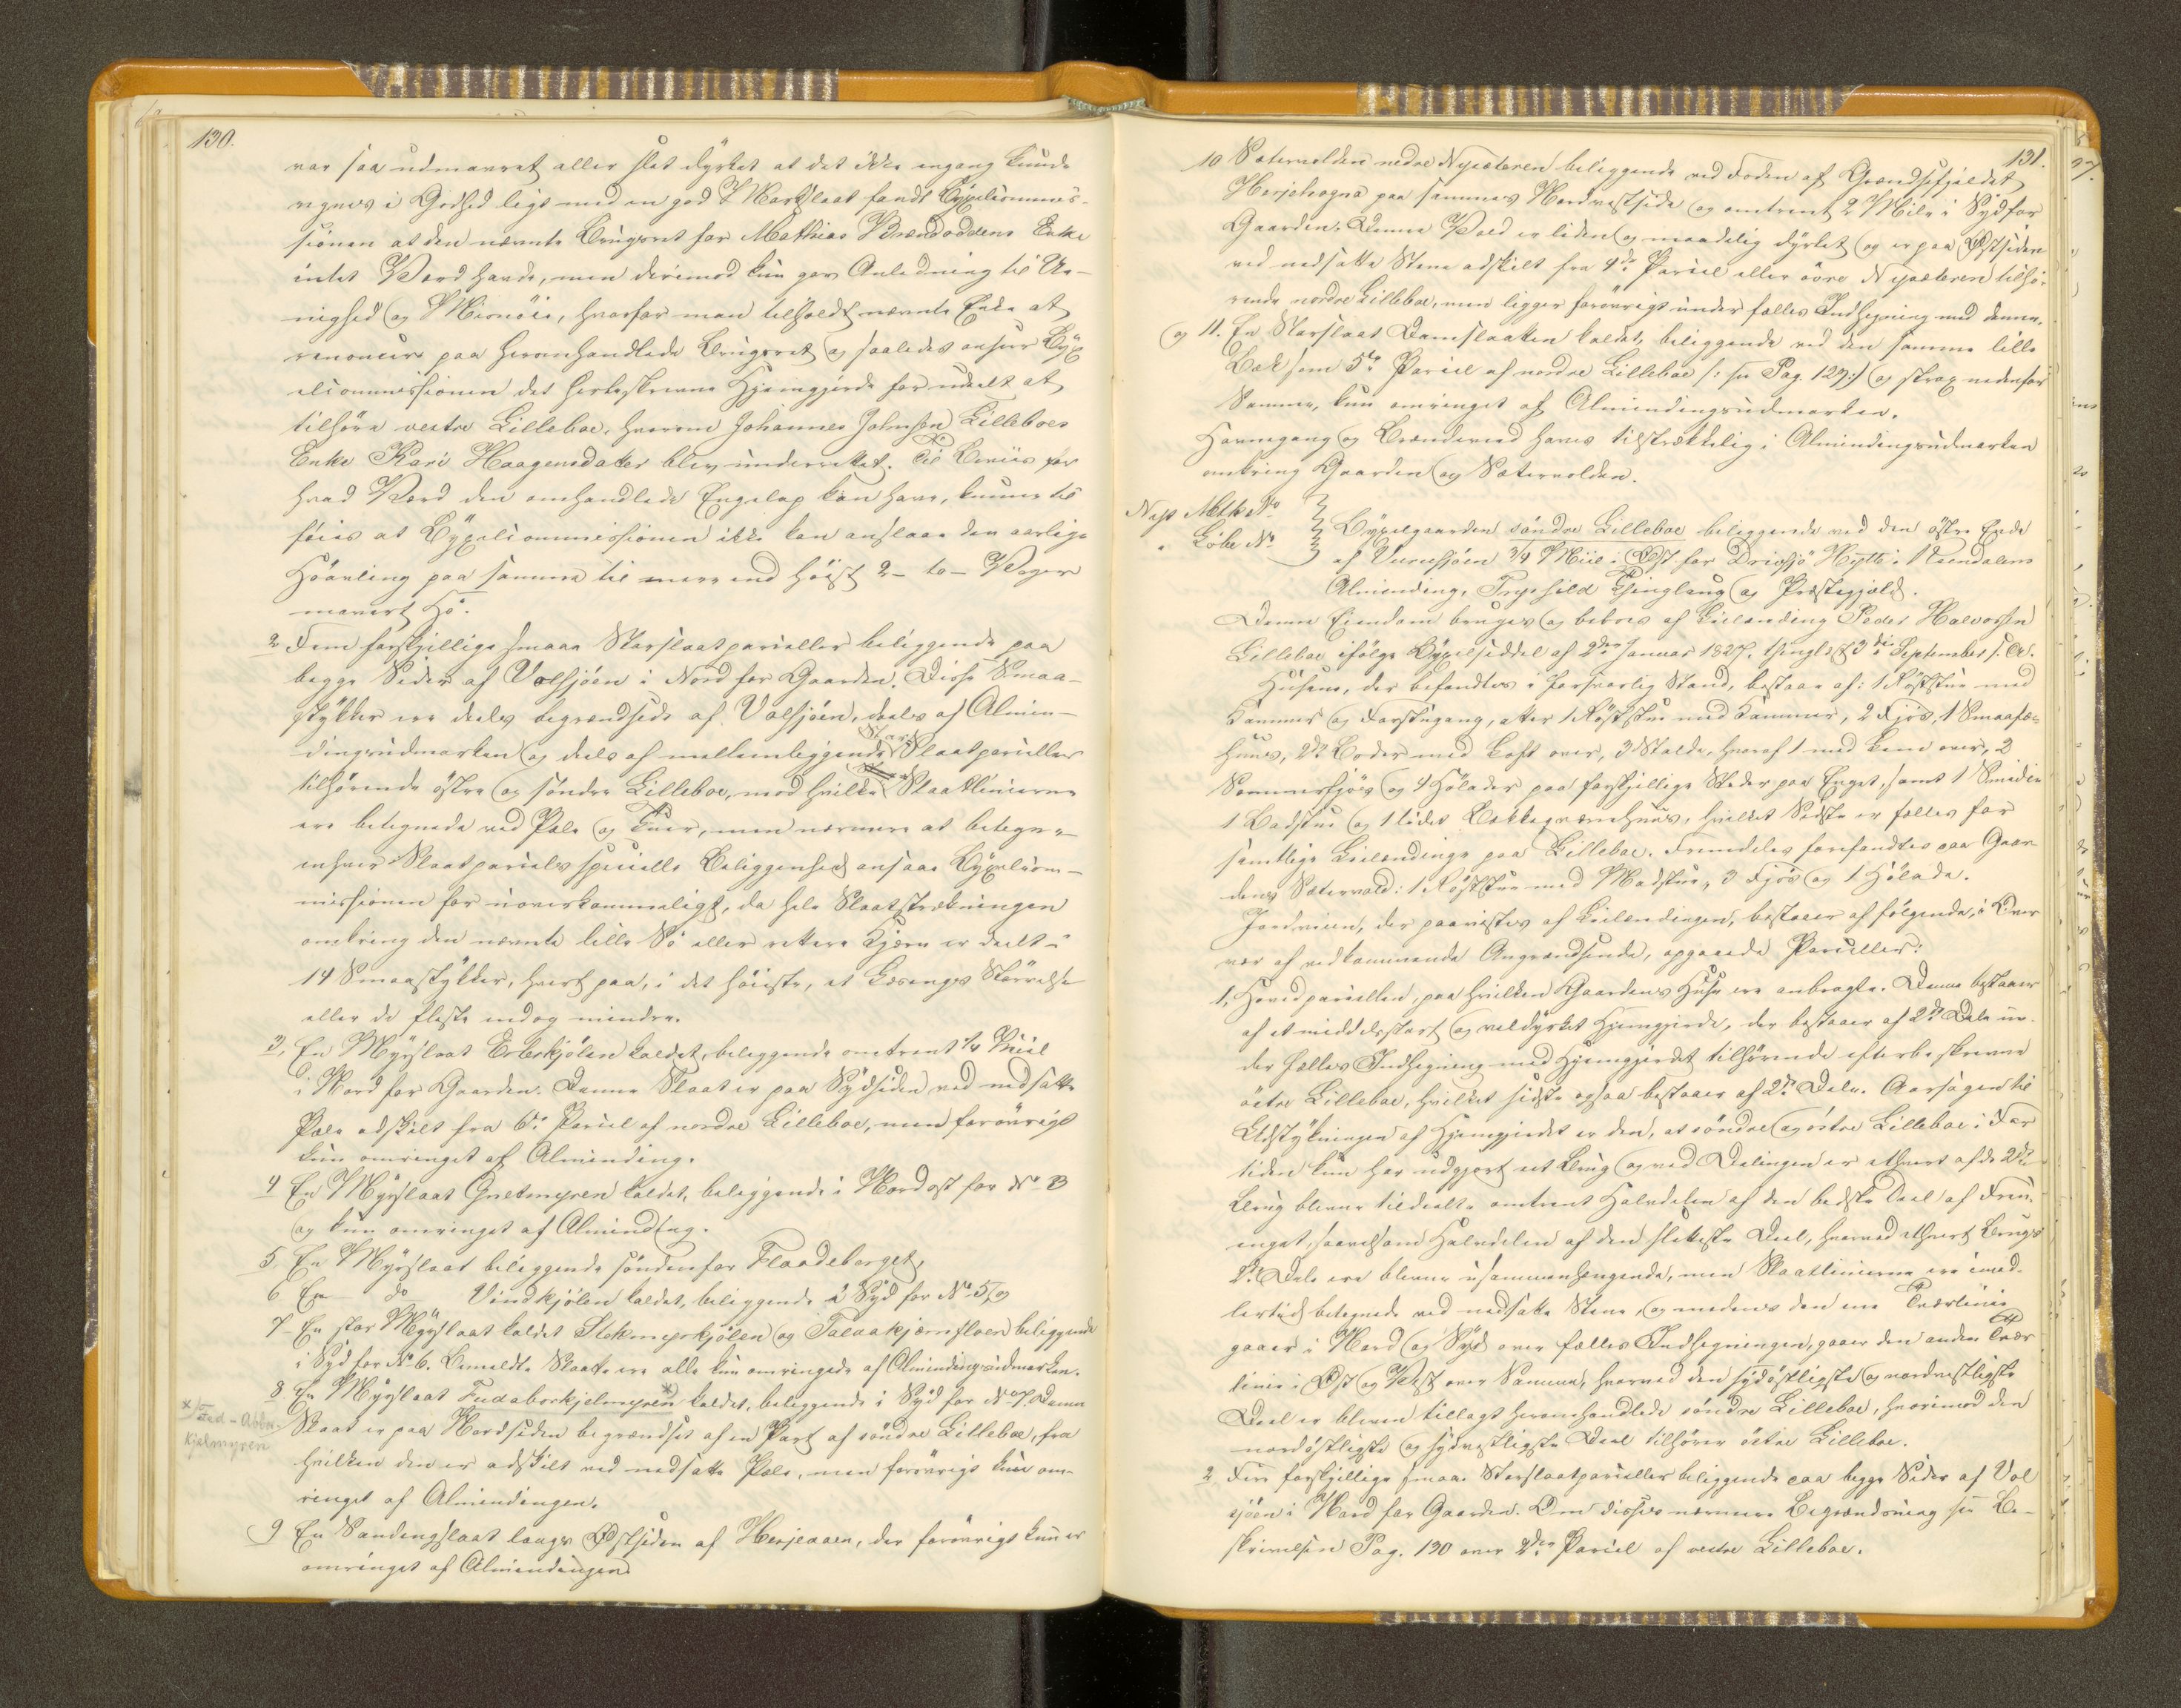 130.
var saa udmavret eller slet dyrket at det ikke engang kunde
regnes i Godhed ligt med en god Markslaat fandt Bygselcommis-
sionen at den nævnte Brugsret for Mathias Brændoddens Enke
intet Værd havde, men derimod kun gav Anledning til Ue-
nighed og Misnöie, hvorfor man tilholdt nævnte Enke at
renoncere paa heromhandlede Brugsret og saaledes anseer Byg-
selcommissionen det herbeskrevne Hjemgjerde for udeelt at
tilhöre vestre Lilleboe, hvorom Johannes Johnsen Lilleboes
Enke Kari Haagensdatter blev underrettet. Til Beviis for
hvad Værd den omhandlede Engelap kan have, kunne til-
föies at Bygselcommissionen ikke kan anslaae den aarlige
Höavling paa samme til mere end höist 2 - to - Voger
mavert Hö.
2 Fem forskjellige smaae Starslaatparceller beliggende paa
begge Sider af Volsjöen i Nord for Gaarden. Disse Smaa-
stykker ere deels begrændsede af Volsjöen, deels af Almin-
dingsudmarken og deels af mellemliggende Star Slaatparceller
tilhörende östre og söndre Lilleboe, mod hvilke Slaatlinierne
ere betegnede ved Pæle og Tuer, men nærmere at betegne
enhver Slaatparcels specielle Beliggenhed ansaae Bygselcom-
missionen for uoverkommeligt, da hele Slaatstrækningen
omkring den nævnte lille Sö eller rettere Kjern er deelt i
14 Smaastykker, hvert paa, i det höieste, et Læsenges Störrelse
eller de fleste endog mindre.
3, En Myrslaat Erlerkjölen kaldet, beliggende omtrent 1/4 Miil
i Nord for Gaarden. Denne Slaat er paa Sydsiden ved nedsatte
Pæle adskilt fra 6te Parcel af nordre Lilleboe, men forövrigt
kun omringet af Alminding.
4 En Myrslaat Gnetmyren kaldet, beliggende i Nordost for No 3
og kun omringet af Alminding.
5, En Myrslaat beliggende söndenfor Flaadeberget,
6 En do Vindkjölen kaldet, beliggende i Syd for No 5, og
7 En stor Myrslaat kaldet Stekmyrkjölen og Talaakjernfloen beliggende
i Syd for No 6. Bemeldte Slaatte ere alle kun omringede af Almindingsudmarken.
8 En Myrslaat Fudaborkjelmyren* kaldet, beliggende i Syd for No 7. Denne
Slaat er paa Nordsiden begrændset af en Part af söndre Lilleboe, fra
hvilken den er adskilt ved nedsatte Pæle, men forövrigt kun om-
ringet af Almindingen.
kjelmyren
9 En Vandengslaat langs Östsiden af Herjeaaen, der forövrigt kun er
omringet af Almindingen
131.
10 Sætervolden nedre Nysæteren beliggende ved Foden af Grændsefjeldet
Herjehogna paa sammes Nordvestside og omtrent 2 Mile i Syd for
Gaarden. Denne Vold er liden og maadelig dyrket og er paa Östsiden
ved nedsatte Stene adskilt fra 4de Parcel eller övre Nysæteren tilhö-
rende nordre Lilleboe, men ligger forövrigt under fælles Indhegning med denne,
og 11. En Starslaat Damslaatten kaldet, beliggende ved den samme lille
Bæk som 5te Parcel af nordre Lilleboe /: see Pag. 129:/ og strax nedenfor
Samme, kun omringet af Almindingsudmarken.
Havnegang og Brændeved haves tilstrækkelig i Almindingsudmarken
omkring Gaarden og Sætervolden.
Nyt Matk No
" Löbe No
Bygselgaarden söndre Lilleboe beliggende ved den östre Ende
af Vurrusjöen 3/4 Miil i Öst for Drevsjö Hytte i Rendalens
Alminding, Trysild Thinglaug og Præstegjeld.
Denne Eiendom bruges og beboes af Leilænding Peder Halvorsen
Lilleboe ifölge Bygselseddel af 2den Januar 1827, thinglæst 3die September s. A.
Husene, der befandtes i forsvarlig Stand, bestaae af: 1 Röststue med
Kammer og Forstugang, atter 1 Röststue med Kammer, 2 Fjös, 1 Smaafæ-
huus, 2de Boder med Loft over, 3 Stalde, hvoraf 1 med Lem over, 2
Sommerfjös og 4 Hölader paa forskjellige Steder paa Enget, samt 1 Smidie
1 Badstue og 1 lidet Bækkeqværnhuus, hvilket Sidste er fælles for
samtlige Leilændinge paa Lilleboe. Fremdeles forefandtes paa Gaar-
dens Sætervold: 1 Röststue med Madstue, 3 Fjös og 1 Hölade.
Jordveien, der paavistes af Leilændingen, bestaaer af fölgende, i Over-
vær af vedkommende Angrændsende, opgaaede Parceller:
1, Hovedparcellen, paa hvilken Gaardens Huse ere anbragte. Denne bestaaer
af et middelsstort og veldyrket Hjemgjerde, der bestaaer af 2de Dele un-
der fælles Indhegning med Hjemgjerdet tilhörende efterbeskrevne
östre Lilleboe, hvilket sidste ogsaa bestaaer af 2de Dele. Aarsagen til
Udstykningen af Hjemgjerdet er den, at söndre og östre Lilleboe i For-
tiden kun har udgjort eet Brug og ved Delingen er ethvert af de 2de
Brug blevne tildeelte omtrent Halvdelen af den bedste Deel af Frem-
enget, saavelsom Halvdelen af den sletteste Deel, hvorved ethvert Brugs
2de Dele ere blevne usammenhængende, men Slaatlinierne ere imid-
lertid betegnede ved nedsatte Stene, og medens den ene Tværlinie
gaaer i Nord og Syd over fælles Indhegningen, gaaer den anden Tvær-
linie i Öst og Vest over Samme, hvorved den sydöstligste og nordvestligste
Deel er bleven tillagt heromhandlede söndre Lilleboe, hvorimod den
nordöstligste og sydvestligste Deel tilhörer östre Lilleboe.
2, Fire forskjellige smaae Starslaatparceller beliggende paa begge Sider af Vol-
sjöen i Nord for Gaarden. Om disses nærmere Begrændsning see Be-
skrivelsen Pag. 130 over 2den Parcel af vestre Lilleboe.